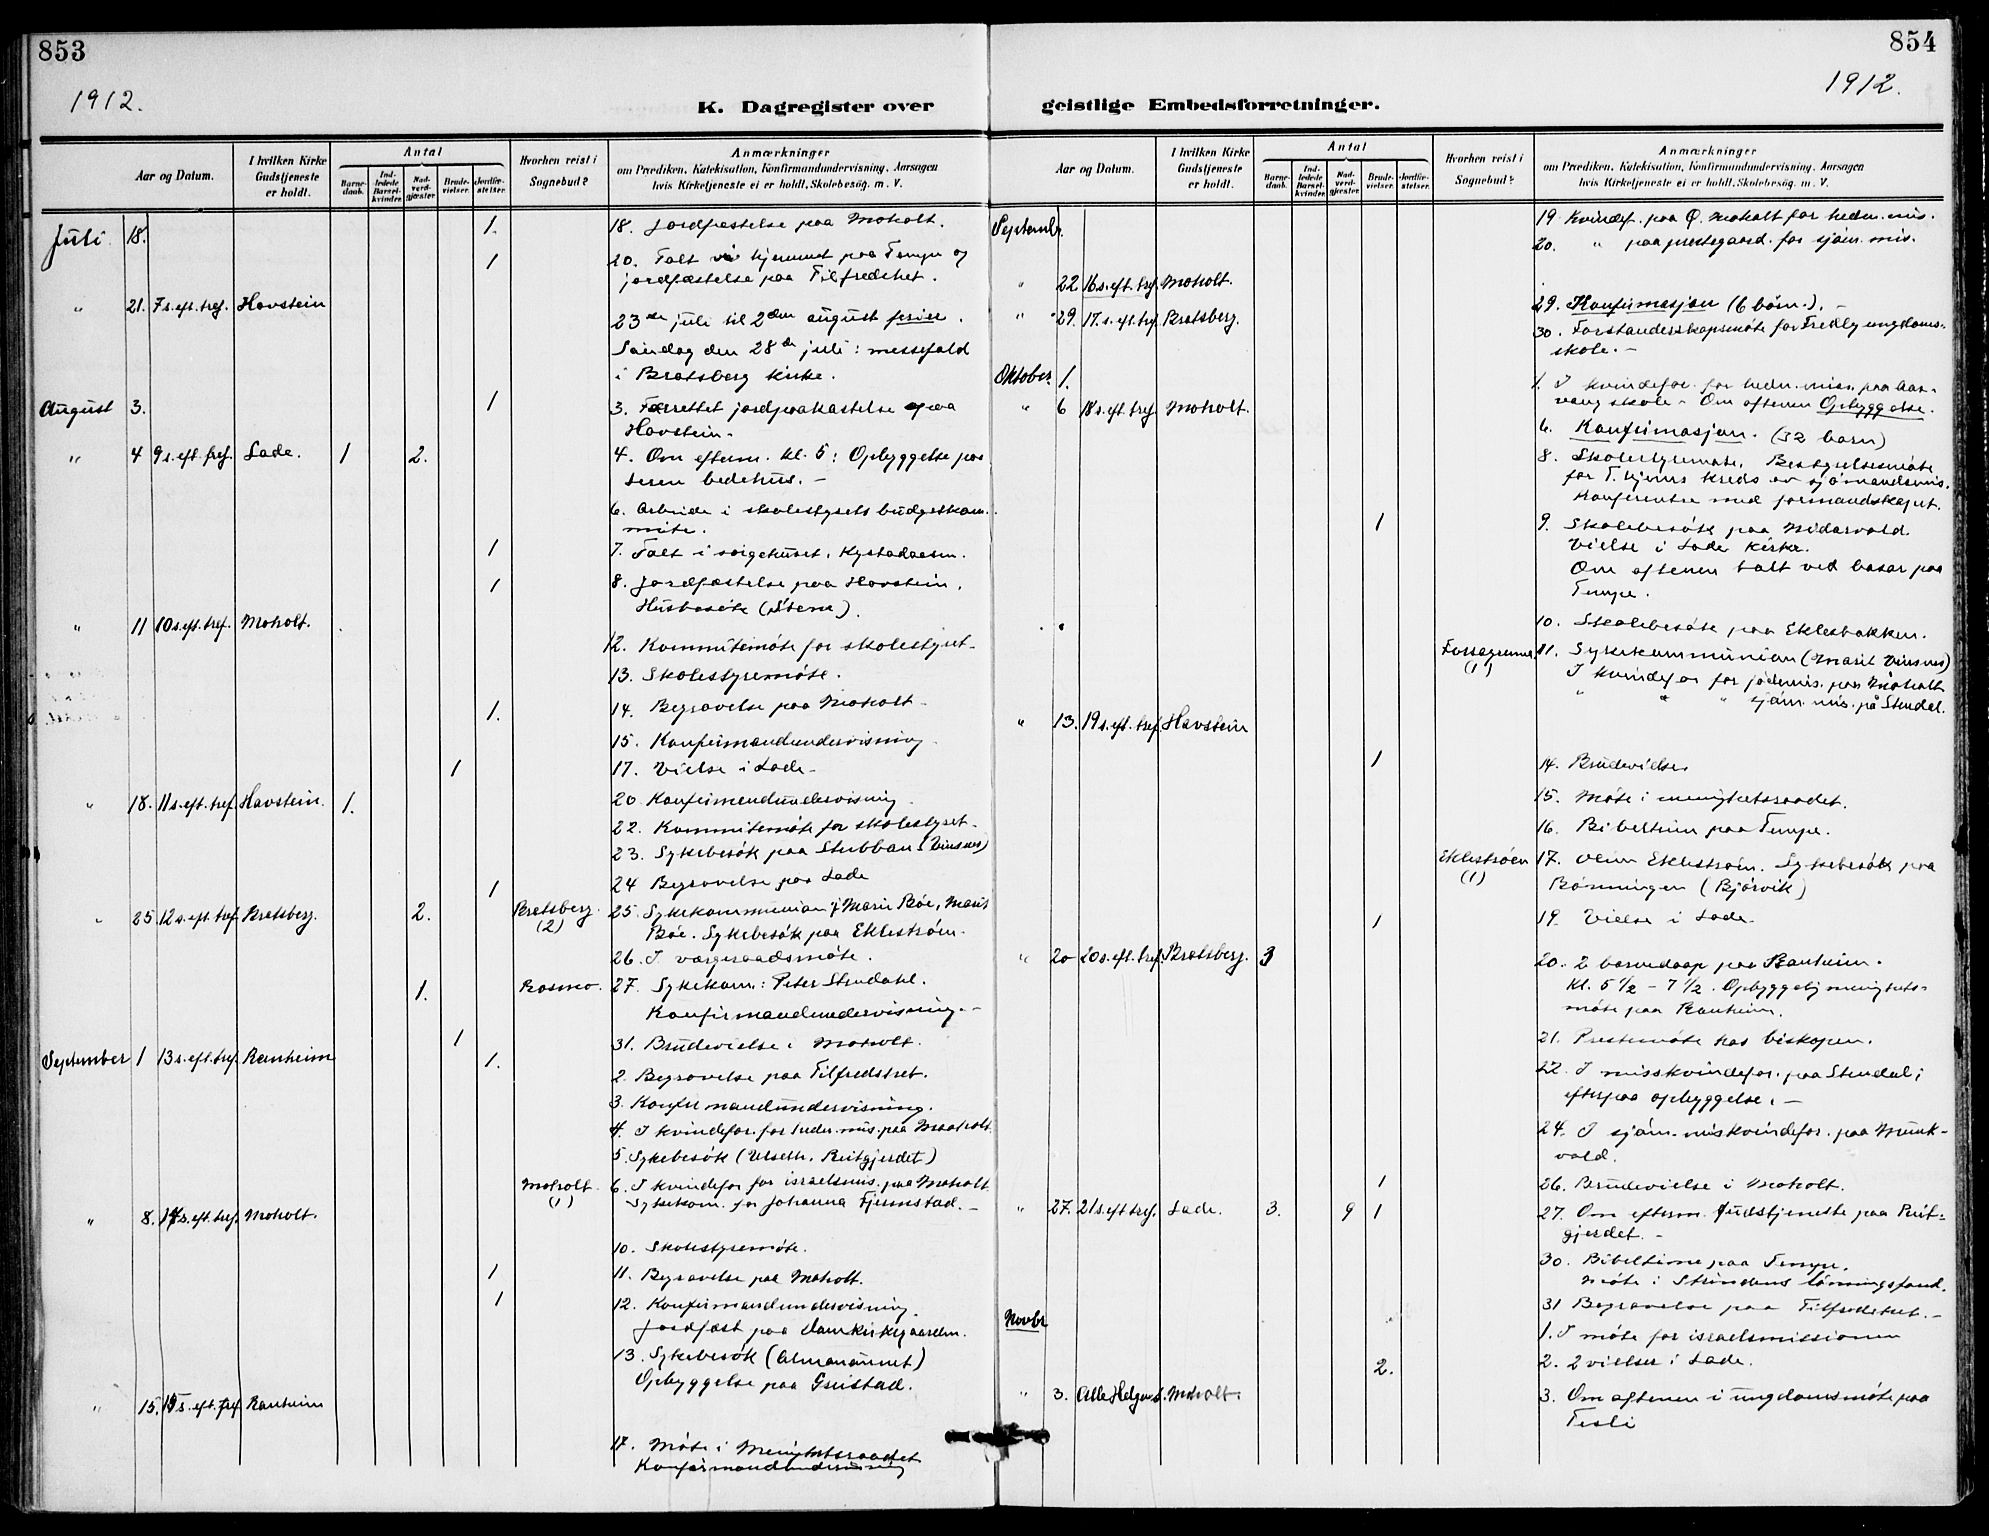 853
1912.
K. Dagregister over
Aar og Datum.
I hvilken Kirke Gudstjeneste er holdt.
Antal
Barnedaab.
Indledede Barselkvinder.
Nadverdgjæster.
Brudevielser.
Jordfæstelser.
Hvorhen reist i Sognebud?
Anmærkninger
om Prædiken, Katekisation, Konfirmandundervisning, Aarsagen
hvis Kirketjeneste ei er holdt, Skolebesøg. m. V.
Juli 18. 1. 18. Jordfæstelse paa Moholt.
1 20. Talt i hjemmet paa Tempe og
jordfæstelse paa Tilfredshet.
" 21. 7 s. eft. tref. Havstein
23de juli til 2den august ferie.
Søndag den 28de juli: messefald
i Bratsberg kirke.
August 3. 1 3. Forrettet jordpaakastelse paa
Havstein.
" 4 9 s. eft. tref. Lade. 1 2. 4. Om efterm. kl. 5: Opbyggelse paa
bedehus. -
6. Arbeide i skolestyrets budgetkom-
mite.
1 7. Talt i sørgehuset, Kystadaasen.
1 8. Jordfæstelse paa Havstein.
Husbesök (Stene).
" 11 10 s. eft. tref. Moholt.
12. Kommitemöte for skolestyret.
13. Skolestyremöte.
1. 14. Begravelse paa Moholt.
15. Konfirmandundervisning
1 17. Vielse i Lade.
" 18. 11 s. eft. tref. Havstein. 1. 20. Konfirmandundervisning.
22. Kommitemöte for skolestyret.
23. Sykebesök paa Stubban (Vinsnes)
1 24 Begravelse paa Lade
" 25 12 s. eft. tref. Bratsberg. 2. Bratsberg. (2) 25. Sykekommunion f. Marie Böe, Marit
Böe. Sykebesök paa Ekleström.
26. I vergeraadsmöte.
1. Rosmo. 27. Sykekom: Peter Stendahl.
Konfirmandundervisning. -
1 31. Brudevielse i Moholt.
September 1 13 s. eft. tref. Ranheim 1. 2. Begravelse paa Tilfredshet.
3. Konfirmandundervisning.
4. I kvindefor. for hedn. mis. paa Moholt.
5. Sykebesök (Ulseth. Reitgjerdet)
Moholt (1) 6. I kvindefor for israelsmis. paa Moholt
Sykekom. for Johanna Fjernstad. -
" 8. 14 s. eft. tref. Moholt.
10. Skolestyremöte.
1 11. Begravelse paa Moholt.
1 12. Konfirmandundervisning.
Jordfæst paa Domkirkegaarden.
13. Sykebesök (Almanünnet)
Opbyggelse paa Grilstad.
" 15. 15 s. eft. tref. Ranheim
17. Möte i Menighetsraadet
Konfirmandundervisning
854
1912.
geistlige Embedsforretninger.
Aar og Datum.
I hvilken Kirke Gudstjeneste er holdt.
Antal
Barnedaab.
Indledede Barselkvinder.
Nadverdgjæster.
Brudevielser.
Jordfæstelser.
Hvorhen reist i Sognebud?
Anmærkninger
om Prædiken, Katekisation, Konfirmandundervisning, Aarsagen
hvis Kirketjeneste ei er holdt, Skolebesøg. m. V.
Septembr. 19 Kvindef. paa Ö. Moholt for hedn. mis.
20. " paa prestegaard. for sjöm. mis.
" 22 16 s. eft. tref. Moholt.
" 29. 17. s. eft. tref. Bratsberg. 29. Konfirmasjon (6 börn.). -
30. Forstanderskapsmöte for Fredly ungdoms-
skole. -
Oktober. 1. 1. I kvindefor. for hedn. miss. paa Aas-
vang skole - Om aftenen Opbyggelse.
" 6 18 s. eft. tref. Moholt. 6. Konfirmasjon. (32 barn)
8. Skolestyremöte. Bestyrelsesmöte
for T.hjems kreds av sjömandsmis.
Konferentse med formandskapet.
1 9. Skolebesök paa Nidarvold.
Vielse i Lade Kirke.
Om aftenen talt ved basar paa
Tempe.
10. Skolebesök paa Eklesbakken.
(1) 11. Sykekommunion (Marit Vinsnes)
I kvindefor for jödemis. paa Moholt
" " " sjöm. mis. på Stendal.
" 13. 19 s. eft. tref. Havstein
1 14. Brudevielse
15. Möte i menighetsraadet.
16. Bibeltime paa Tempe.
Eklestrøen (1) 17. Olim Ekleströen. Sykebesök paa
Rönningen (Bjørvik)
1 19. Vielse i Lade.
" 20 20 s. eft. tref. Bratsberg. 3 20. 2 barnedaap paa Ranheim.
Kl. 5 1/2 - 7 1/2. Opbyggelig menighets-
möte paa Ranheim.
21. Prestemöte hos biskopen.
22. I misskvindefor. paa Stendal;
efterpaa opbyggelse. -
24. I sjöm. miskvindefor. paa Munk-
vold.
1 26. Brudevielse i Moholt.
" 27. 21 s. eft tref. Lade. 3. 9 1 27. Om efterm. gudstjeneste paa Reit-
gjerdet. -
30. Bibeltime paa Tempe.
Möte i Strindens lönningsfond.
31 Begravelse paa Tilfredshet. -
Novbr 1. I möte for israelsmissionen
2. 2. 2 vielser i Lade.
" 3. Alle Helgen s. Moholt. 3. Om aftenen i ungdomsmöte paa
Tesli